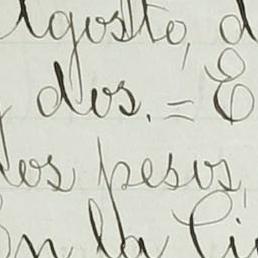 Agosto, d
dos. = E
los pesos,
En la Ci